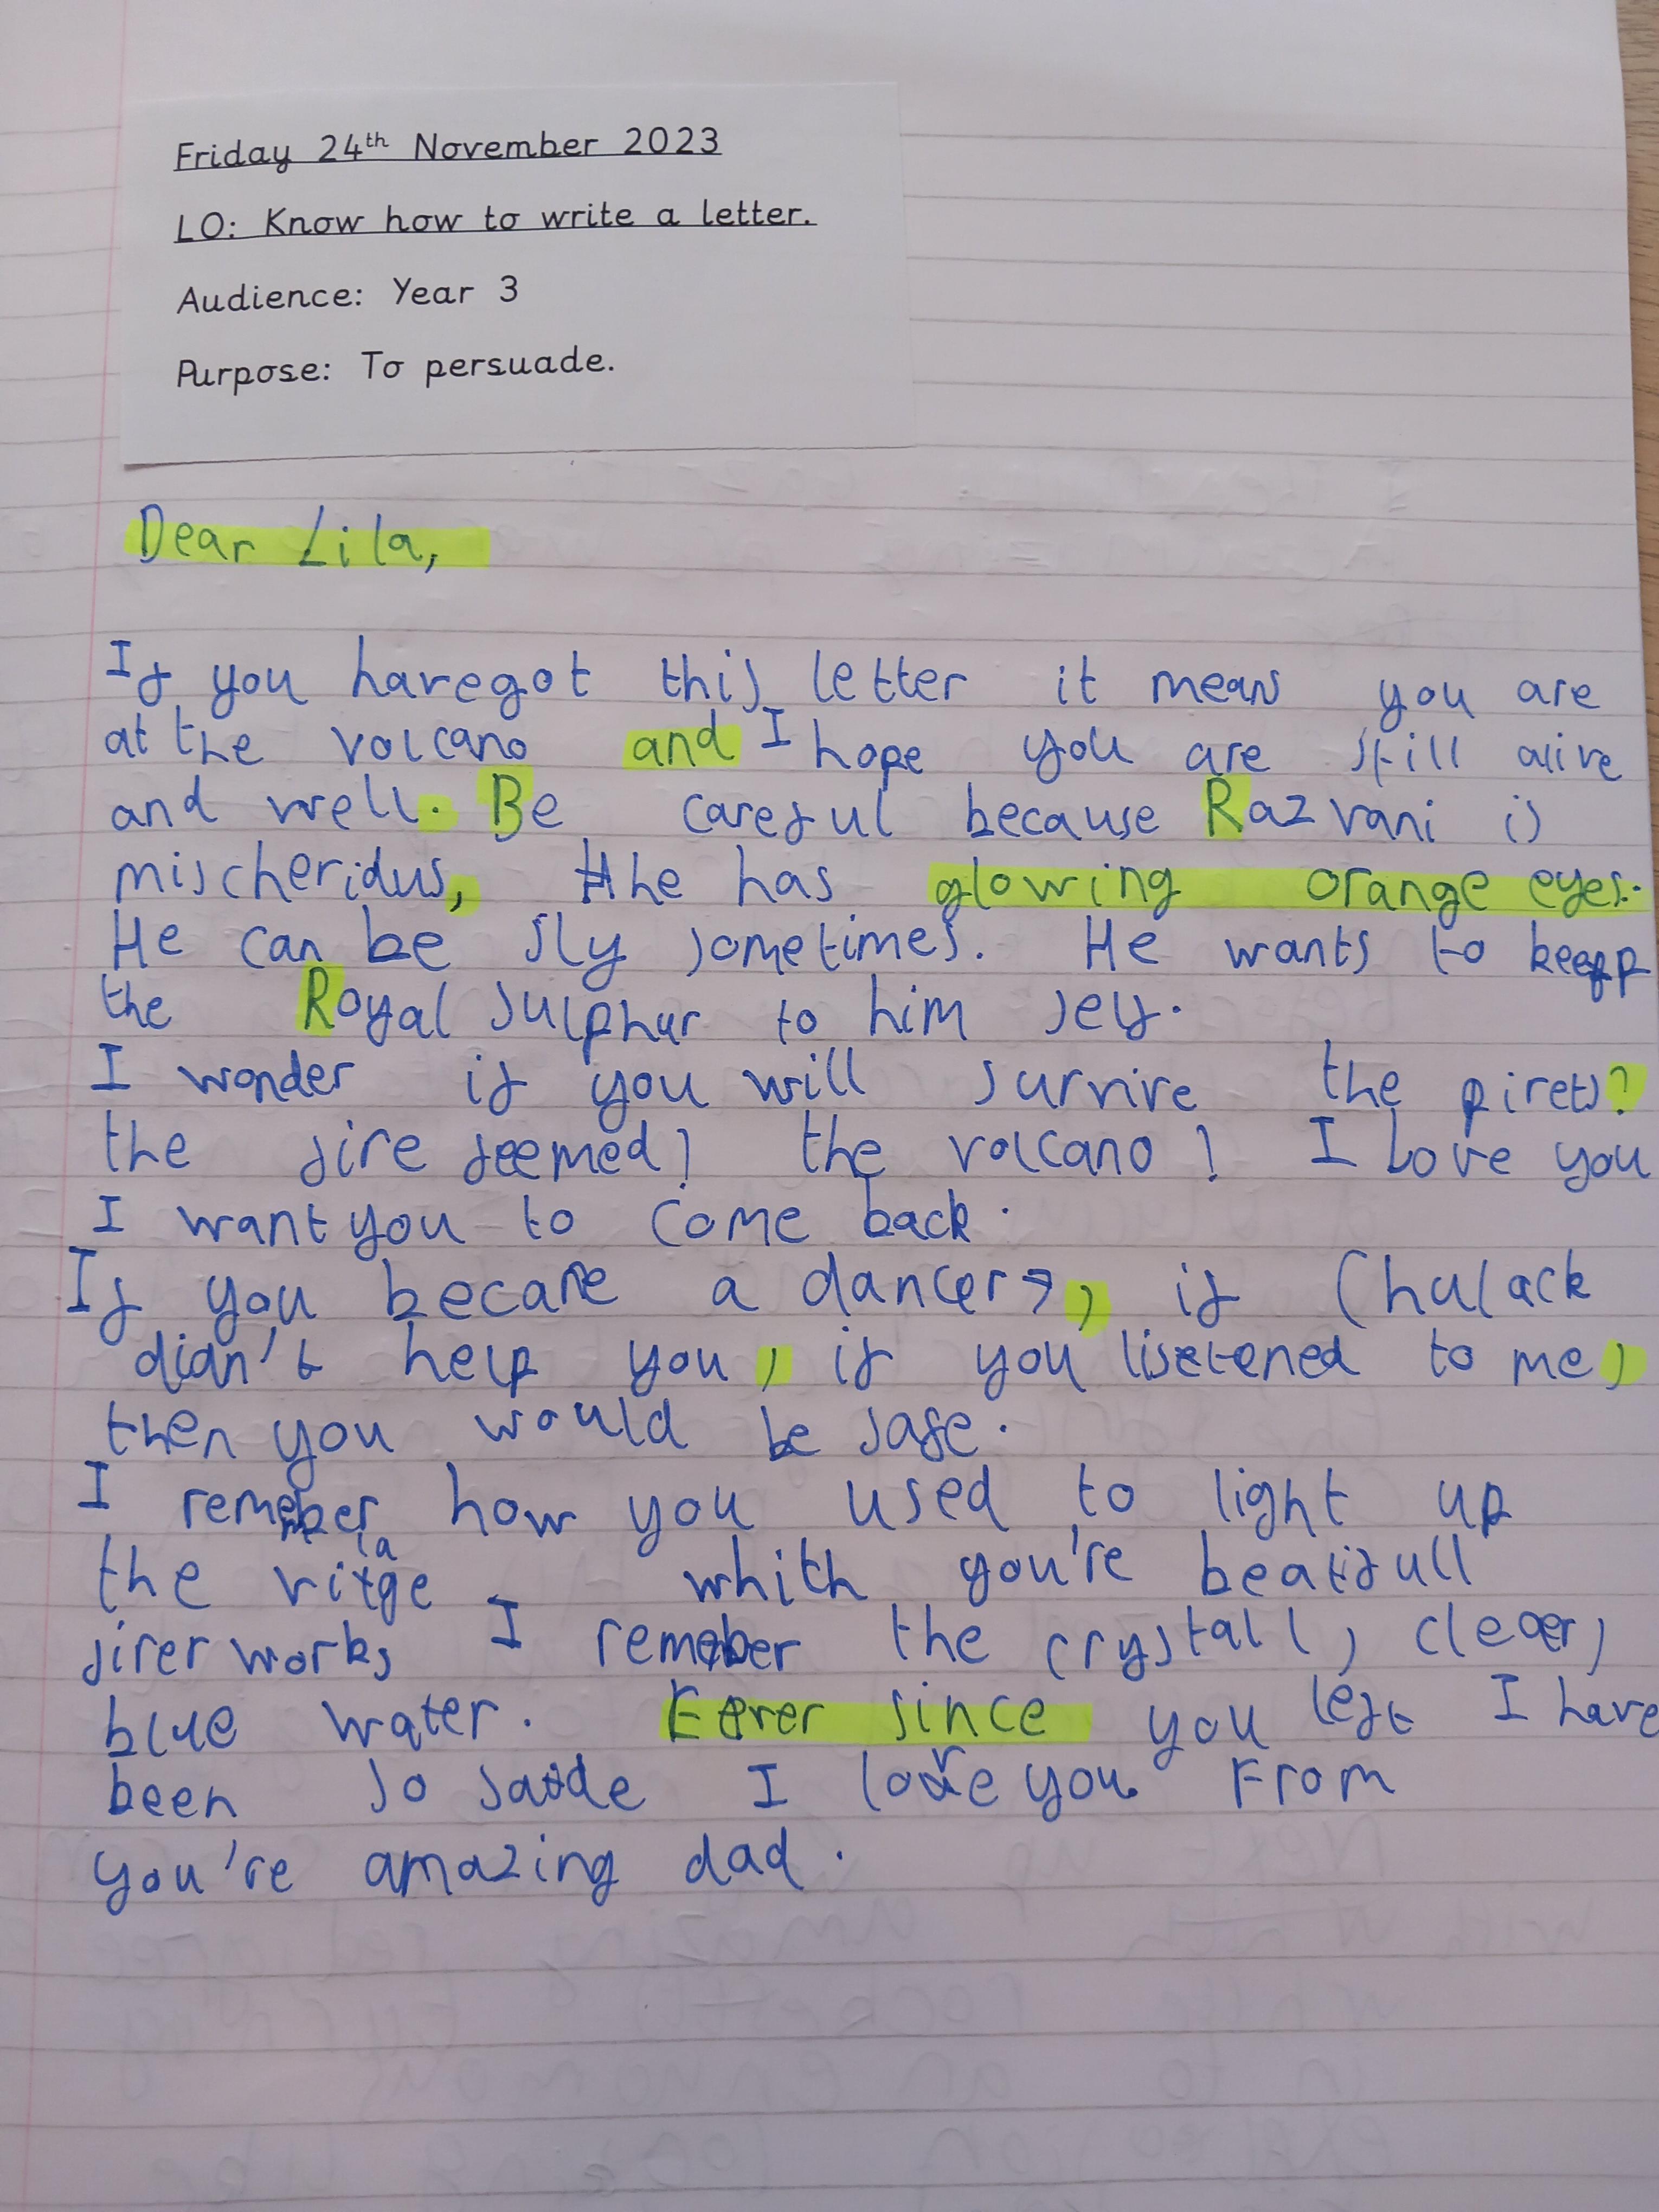 Friday 24th November 2023
LO: Know how to write a letter.
Audience: Year 3
Purpose: To persuade.
Dear Lila,
If you have got this letter it means you are
at the volcano and I hope you are still alive
and well. Be careful because Razvani is
mischevidus, he has glowing orange eyes.
He can be sly sometimes. He wants to keep
the Royal Sulphur to him self.
I wonder if you will survive the pirets?
the fire feemed! the volcano! I love you
I want you to come back.
If you became a dancer, if Chulack
didn't help you, if you lisetened to me,
then you would be safe.
I remember how you used to light up
the vilage whith you're beatifull
firer works I remember the crystall, clear,
blue water. Ever since you left I have
been so sade I love you. From
you're amazing dad.